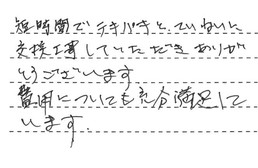 短時間でテキパキと、ていねいに
交換工事していただき ありが
とうございます
費用についても充分満足して
います.